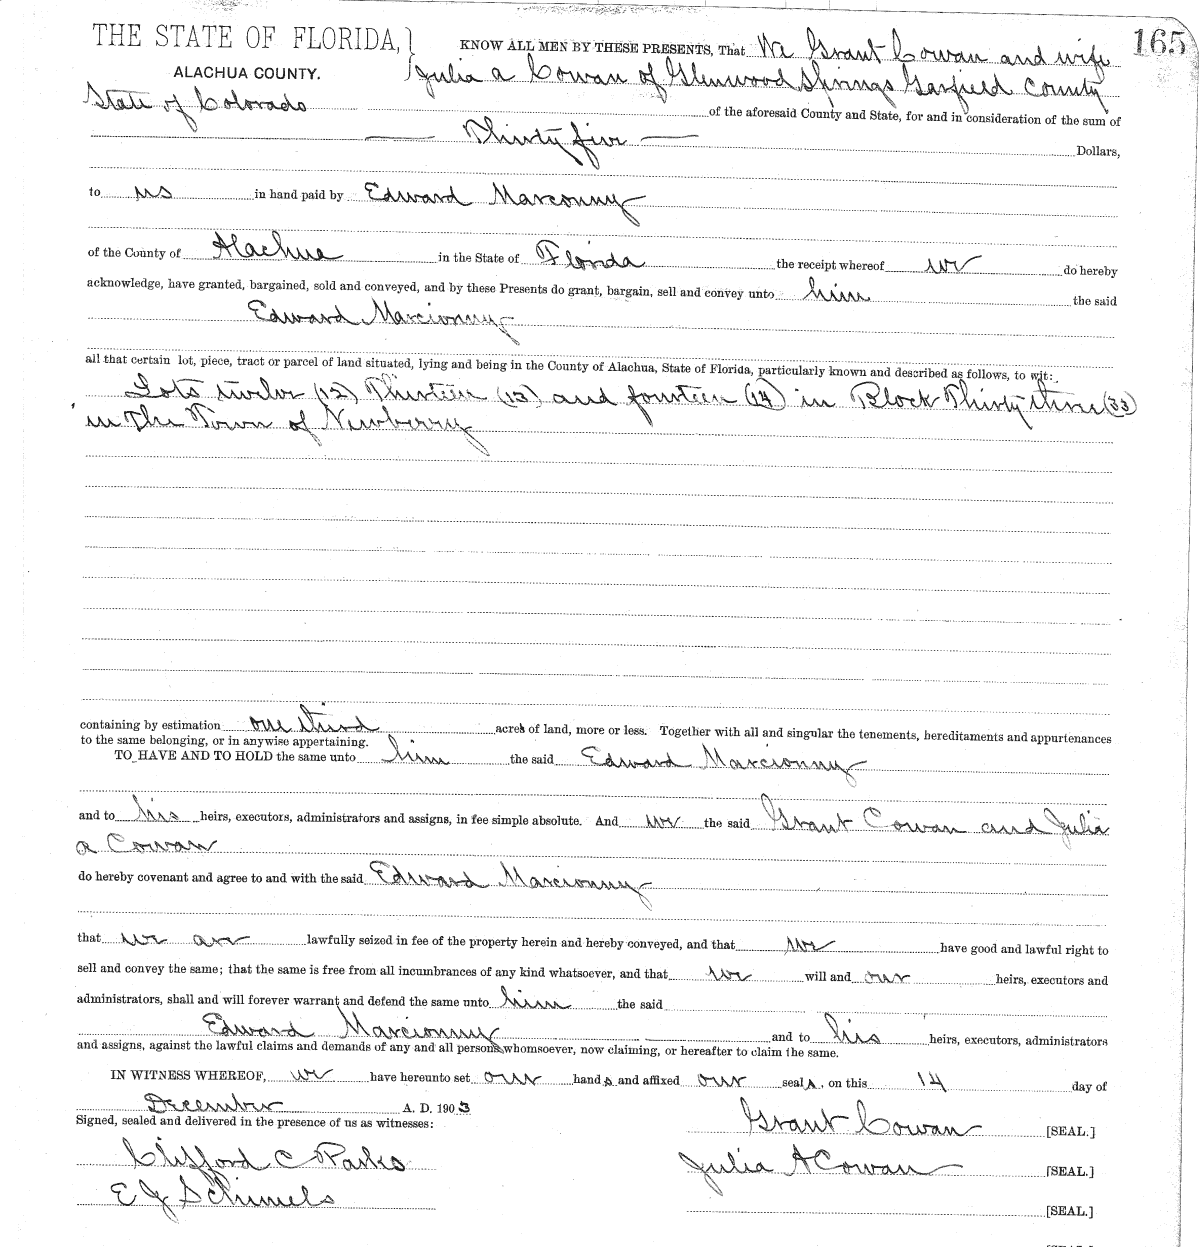 165
THE STATE OF FLORIDA, } KNOW ALL MEN BY THESE PRESENTS, That We Grant Cowan and wife
ALACHUA COUNTY. Julia a Cowan of Glenwood Springs Garfield County
State of Colorado of the aforesaid County and State, for and in consideration of the sum of
Thirty five Dollars,
to us in hand paid by Edward Marconny
of the County of Alachua in the State of Florida the receipt whereof we do hereby
acknowledge, have granted, bargained, sold and conveyed, and by these Presents do grant, bargain, sell and convey unto him the said
Edward Marcionny
all that certain lot, piece, tract or parcel of land situated, lying and being in the County of Alachua, State of Florida, particularly known and described as follows, to wit:
Lots twelve (12) Thirteen (13) and fourteen (14) in Block Thirty three (33)
in The Town of Newberry
containing by estimation one third acres of land, more or less. Together with all and singular the tenements, hereditaments and appurtenances
to the same belonging, or in anywise appertaining.
TO HAVE AND TO HOLD the same unto him the said Edward Marcionny
and to his heirs, executors, administrators and assigns, in fee simple absolute. And we the said Grant Cowan and Julia
a Cowan
do hereby covenant and agree to and with the said Edward Marcionny
that we are lawfully seized in fee of the property herein and hereby conveyed, and that we have good and lawful right to
sell and convey the same; that the same is free from all incumbrances of any kind whatsoever, and that we will and our heirs, executors and
administrators, shall and will forever warrant and defend the same unto him the said
Edward Marcionny and to his heirs, executors, administrators
and assigns, against the lawful claims and demands of any and all persons whomsoever, now claiming, or hereafter to claim the same.
IN WITNESS WHEREOF, we have hereunto set our hands and affixed our seals, on this 14 day of
December A. D. 1903
Signed, sealed and delivered in the presence of us as witnesses: Grant Cowan [SEAL.]
Clifford C Parks Julia A Cowan [SEAL.]
E J Schimels [SEAL.]